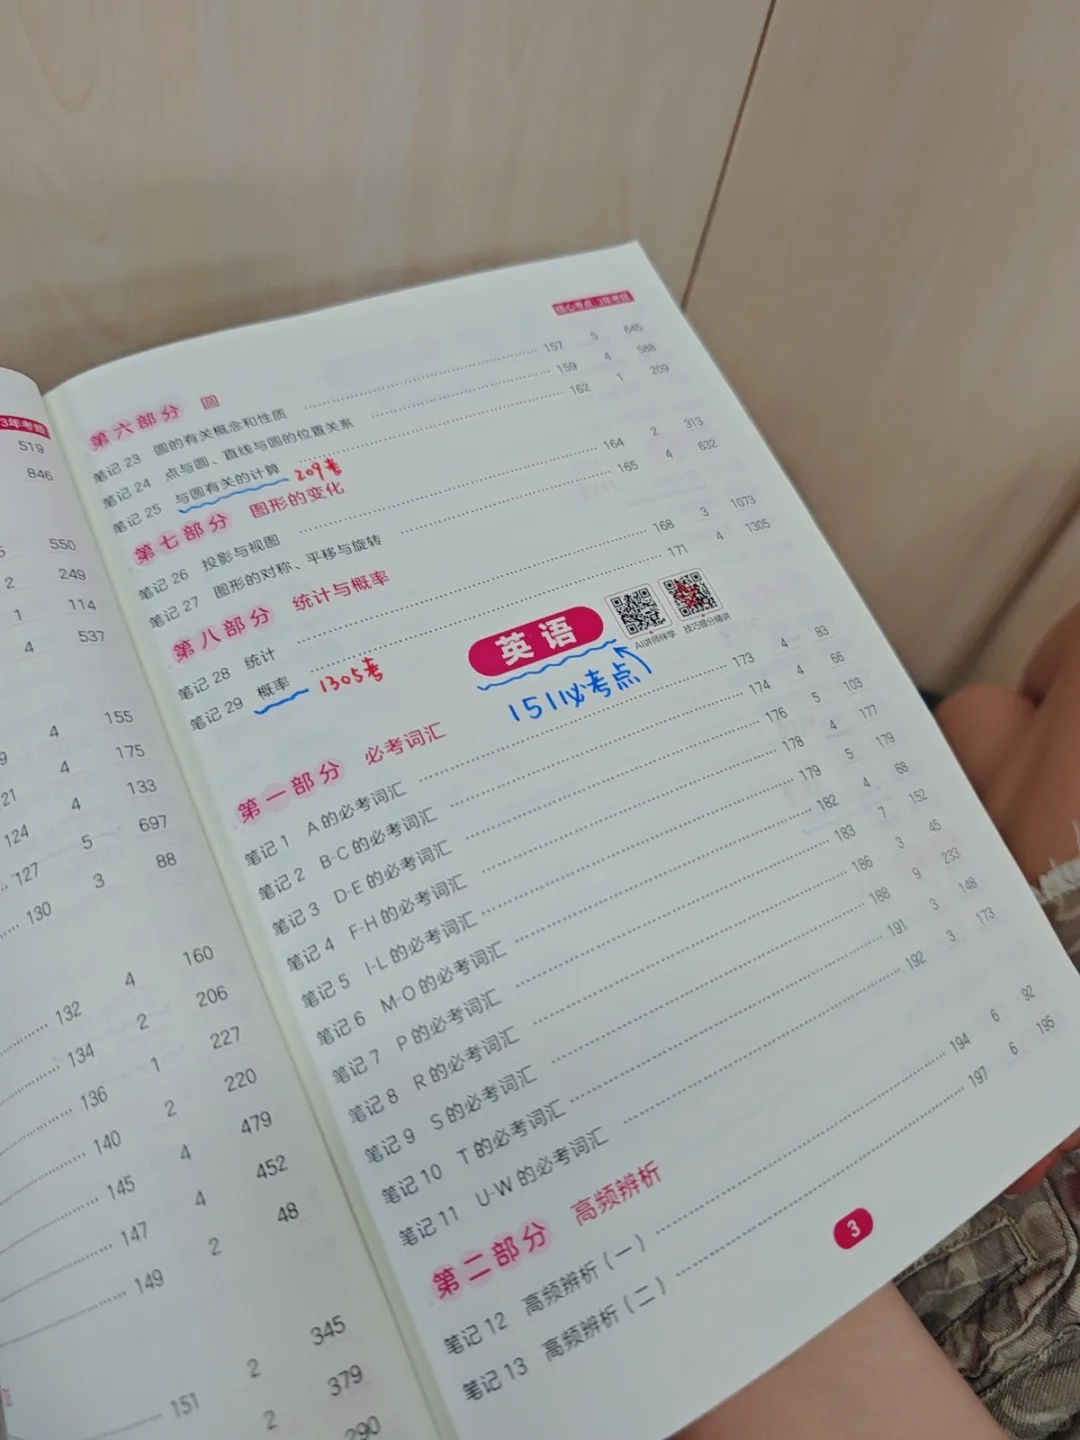 3年考频
519
846
5 550
2 249
1 114
4 537
9 4 155
21 4 175
124 4 133
127 5 697
130 3 88
132 4 160
134 2 206
136 1 227
140 2 220
145 4 479
147 4 452
149 2 48
151 2 345
2 379
290
核心考点 3年考频
第六部分 圆
笔记23 圆的有关概念和性质 157 5 645
笔记24 点与圆、直线与圆的位置关系 159 4 588
笔记25 与圆有关的计算 209考 162 1 209
第七部分 图形的变化
笔记26 投影与视图 164 2 313
笔记27 图形的对称、平移与旋转 165 4 632
第八部分 统计与概率
笔记28 统计 168 3 1073
笔记29 概率 1305考 171 4 1305
英语
AI讲师伴学 技巧提分精讲
151必考点
第一部分 必考词汇
笔记1 A的必考词汇 173 4 83
笔记2 B-C的必考词汇 174 4 66
笔记3 D-E的必考词汇 176 5 103
笔记4 F-H的必考词汇 178 4 177
笔记5 I-L的必考词汇 179 5 179
笔记6 M-O的必考词汇 182 4 68
笔记7 P的必考词汇 183 7 152
笔记8 R的必考词汇 186 3 45
笔记9 S的必考词汇 188 9 233
笔记10 T的必考词汇 191 3 148
笔记11 U-W的必考词汇 192 3 173
第二部分 高频辨析
笔记12 高频辨析(一) 194 6 92
笔记13 高频辨析(二) 197 6 195
3